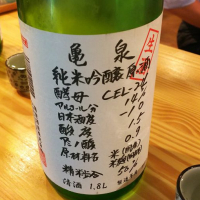 亀泉
生酒
純米吟醸原酒
酵母 CEL-24
アルコール分 14.
日本酒度 -10
酸度 1.5
アミノ酸 0.9
原材料名 米(国産)
米麹(国産米)
精米歩合 50%
清酒 1.8L